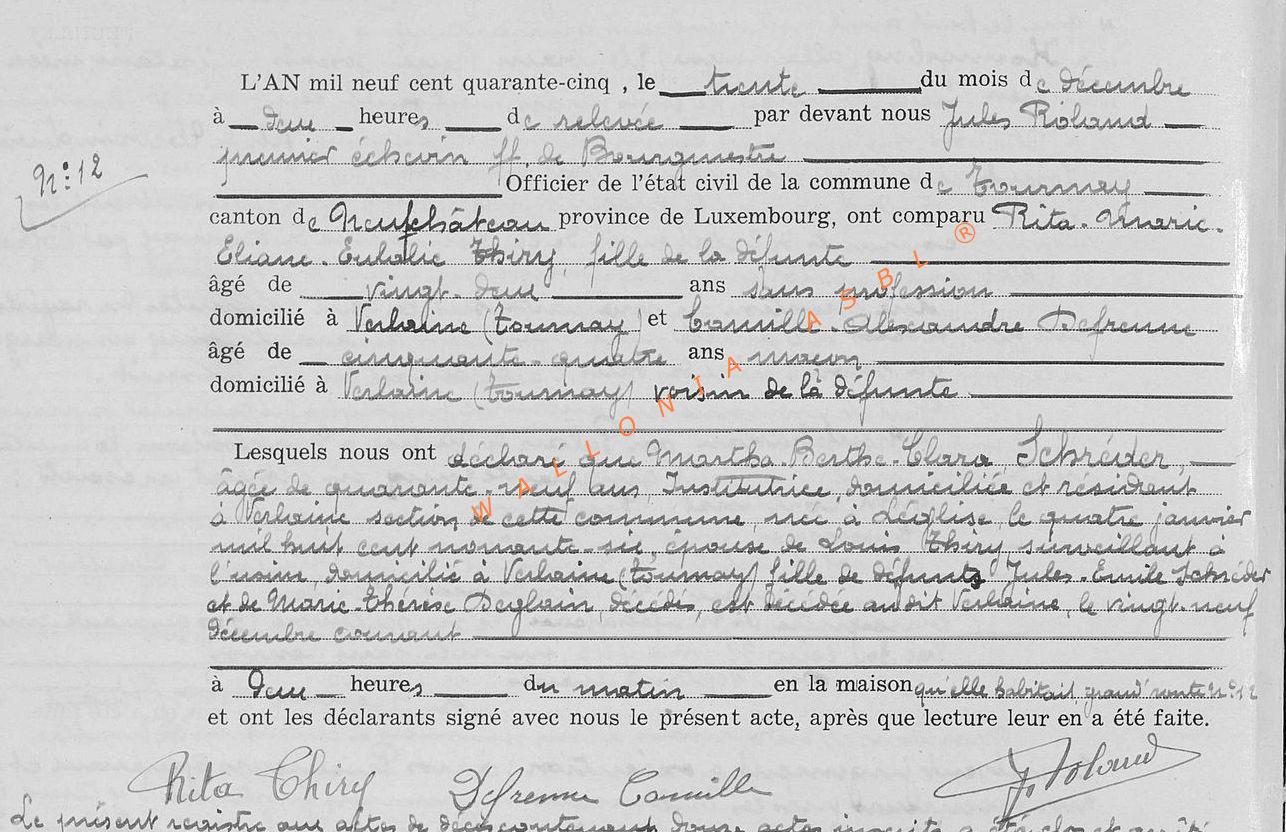 L'AN mil neuf cent quarante-cinq , le trente du mois de décembre
à deux heures de relevée par devant nous Jules Roland
premier échevin ff. de Bourgmestre
N°: 12
Officier de l'état civil de la commune de Tournay
canton de Neufchâteau province de Luxembourg, ont comparu Rita-Marie-
Eliane-Eulalie Thiry, fille de la défunte
âgé de vingt-deux ans sans profession
domicilié à Verlaine (Tournay) et Camille-Alexandre Defrenne
âgé de cinquante-quatre ans maçon
domicilié à Verlaine (Tournay) voisin de la défunte
Lesquels nous ont déclaré que Martha-Berthe-Clara Schréider,
âgée de quarante-neuf ans, Institutrice, domiciliée et résident
à Verlaine section de cette commune, née à Léglise, le quatre janvier
mil huit cent nonante-six, épouse de Louis Thiry, surveillant à
l'usine, domicilié à Verlaine (Tournay) fille de défunts Jules-Emile Schréder
et de Marie-Thérèse Deglain, décédés, est décédée audit Verlaine, le vingt-neuf
décembre courant
à deux heures du matin en la maison qu'elle habitait, grand'route N°: 12
et ont les déclarants signé avec nous le présent acte, après que lecture leur en a été faite.
Rita Thiry Defrenne Camille J. Roland
Le présent registre aux actes de décès contenant douze actes inscrits a été clos et arrêté
WALLONIA ASBL ®